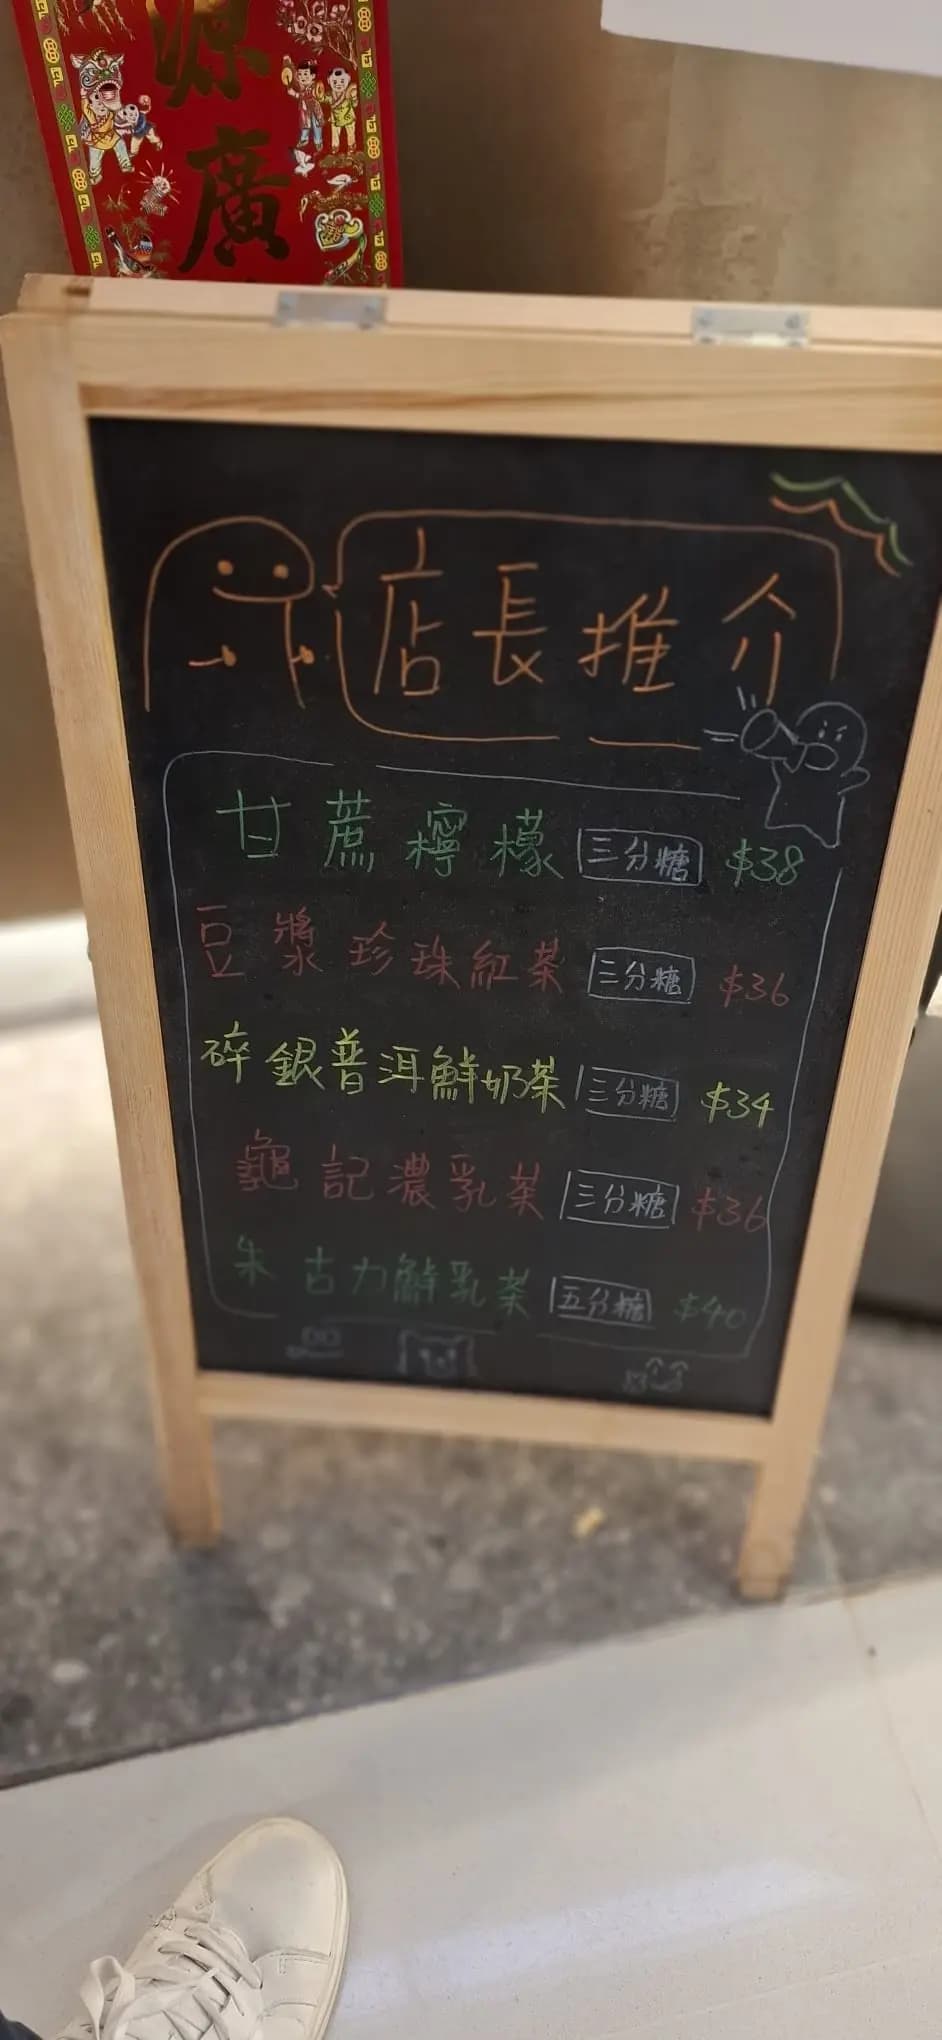 源
廣
店長推介
甘蔗檸檬 三分糖 $38
豆漿珍珠紅茶 三分糖 $36
碎銀普洱鮮奶茶 三分糖 $34
龜記濃乳茶 三分糖 $36
朱古力鮮乳茶 五分糖 $40